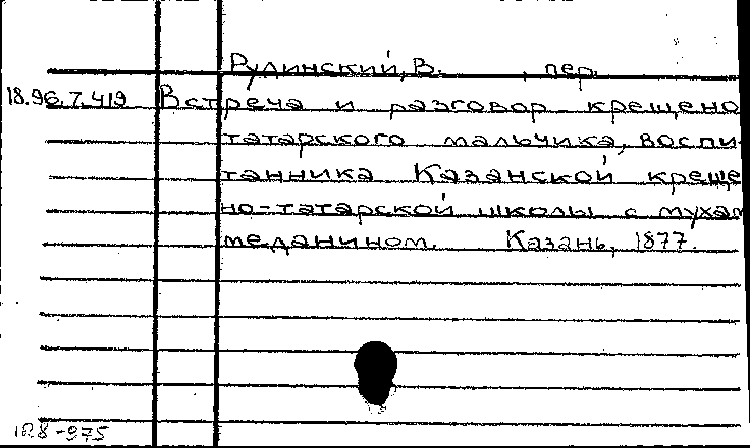 Рудинский, В. , пер.
18.96.7.419 Встреча и разговор крещено
татарского мальчика, воспи
танника Казанской креще
но-татарской школы с мухам
меданином. Казань, 1877.
188-975